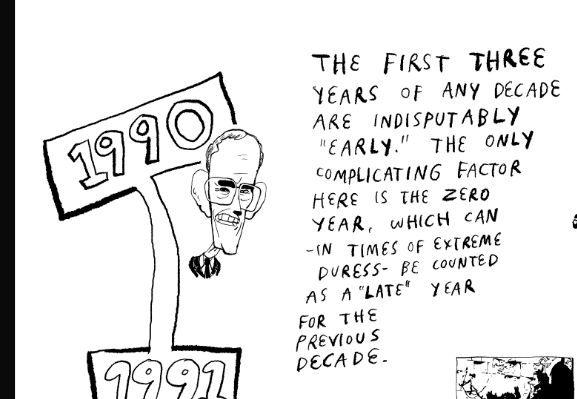 1990
1991
THE FIRST THREE
YEARS OF ANY DECADE
ARE INDISPUTABLY
"EARLY." THE ONLY
COMPLICATING FACTOR
HERE IS THE ZERO
YEAR, WHICH CAN
-IN TIMES OF EXTREME
DURESS- BE COUNTED
AS A "LATE" YEAR
FOR THE
PREVIOUS
DECADE.